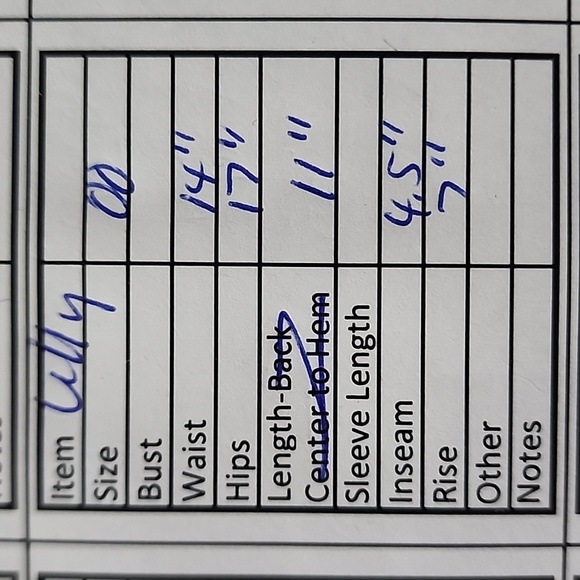 Item Lilly
Size 00
Bust
Waist 14"
Hips 17"
Length-Back
Center to Hem 11"
Sleeve Length
Inseam 4.5"
Rise 7"
Other
Notes